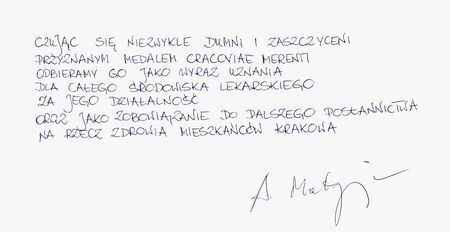 CZUJĄC SIĘ NIEZWYKLE DUMNI I ZASZCZYCENI
PRZYZNANYM MEDALEM CRACOVIAE MERENTI
ODBIERAMY GO JAKO WYRAZ UZNANIA
DLA CAŁEGO ŚRODOWISKA LEKARSKIEGO
ZA JEGO DZIAŁALNOŚĆ
ORAZ JAKO ZOBOWIĄZANIE DO DALSZEGO POSŁANNICTWA
NA RZECZ ZDROWIA MIESZKAŃCÓW KRAKOWA
A.